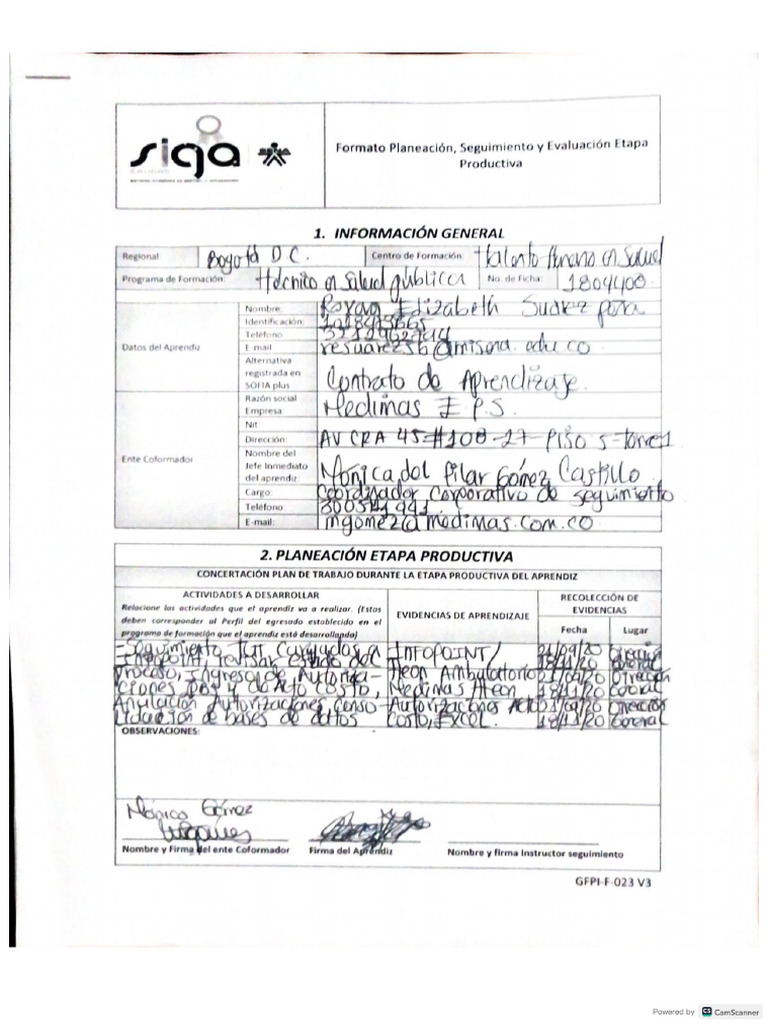 siga
Formato Planeación, Seguimiento y Evaluación Etapa
Productiva
1. INFORMACIÓN GENERAL
Regional Bogotá D C. Centro de Formación: talento Humano en Salud
Programa de Formación: técnico en Salud pública No. de Ficha: 1804400
Datos del Aprendiz
Nombre: Elizabeth Suarez
Identificación:
Telefono:
E mail @misena.edu.co
Alternativa
registrada en
SOFIA plus Contrato de Aprendizaje.
Ente Coformador
Razón social
Empresa Medimas E.P.S.
Nit
Dirección: AV CRA 45 #108-27-Piso 5-torre 1
Nombre del
Jefe Inmediato
del aprendiz: Monica del Pilar Gómez Castillo
Cargo: Coordinador Corporativo de seguimiento
Teléfono:
E-mail: mgomez@medimas.com.co
2. PLANEACIÓN ETAPA PRODUCTIVA
CONCERTACIÓN PLAN DE TRABAJO DURANTE LA ETAPA PRODUCTIVA DEL APRENDIZ
ACTIVIDADES A DESARROLLAR
Relacione las actividades que el aprendiz va a realizar. (Estas
deben corresponder al Perfil del egresado establecido en el
programa de formación que el aprendiz está desarrollando)
EVIDENCIAS DE APRENDIZAJE
RECOLECCIÓN DE
EVIDENCIAS
Fecha Lugar
-Seguimiento INFOPOINT/ 21/09/20 Dirección
Infopoint, revisar estado del Aeon Ambulatorio 18/11/20 General
proceso, Ingreso de Autoriza- 21/09/20 Dirección
ciones y de Alto Costo, Medimas Aeon 18/11/20 General
Anulación Autorizaciones, Autorizaciones Alto 21/09/20 Dirección
de bases de datos Costo, EXCEL. 18/11/20 General
OBSERVACIONES:
Mónica Gómez
Nombre y Firma del ente Coformador Firma del Aprendiz Nombre y firma Instructor seguimiento
GFPI-F-023 V3
Powered by CS CamScanner